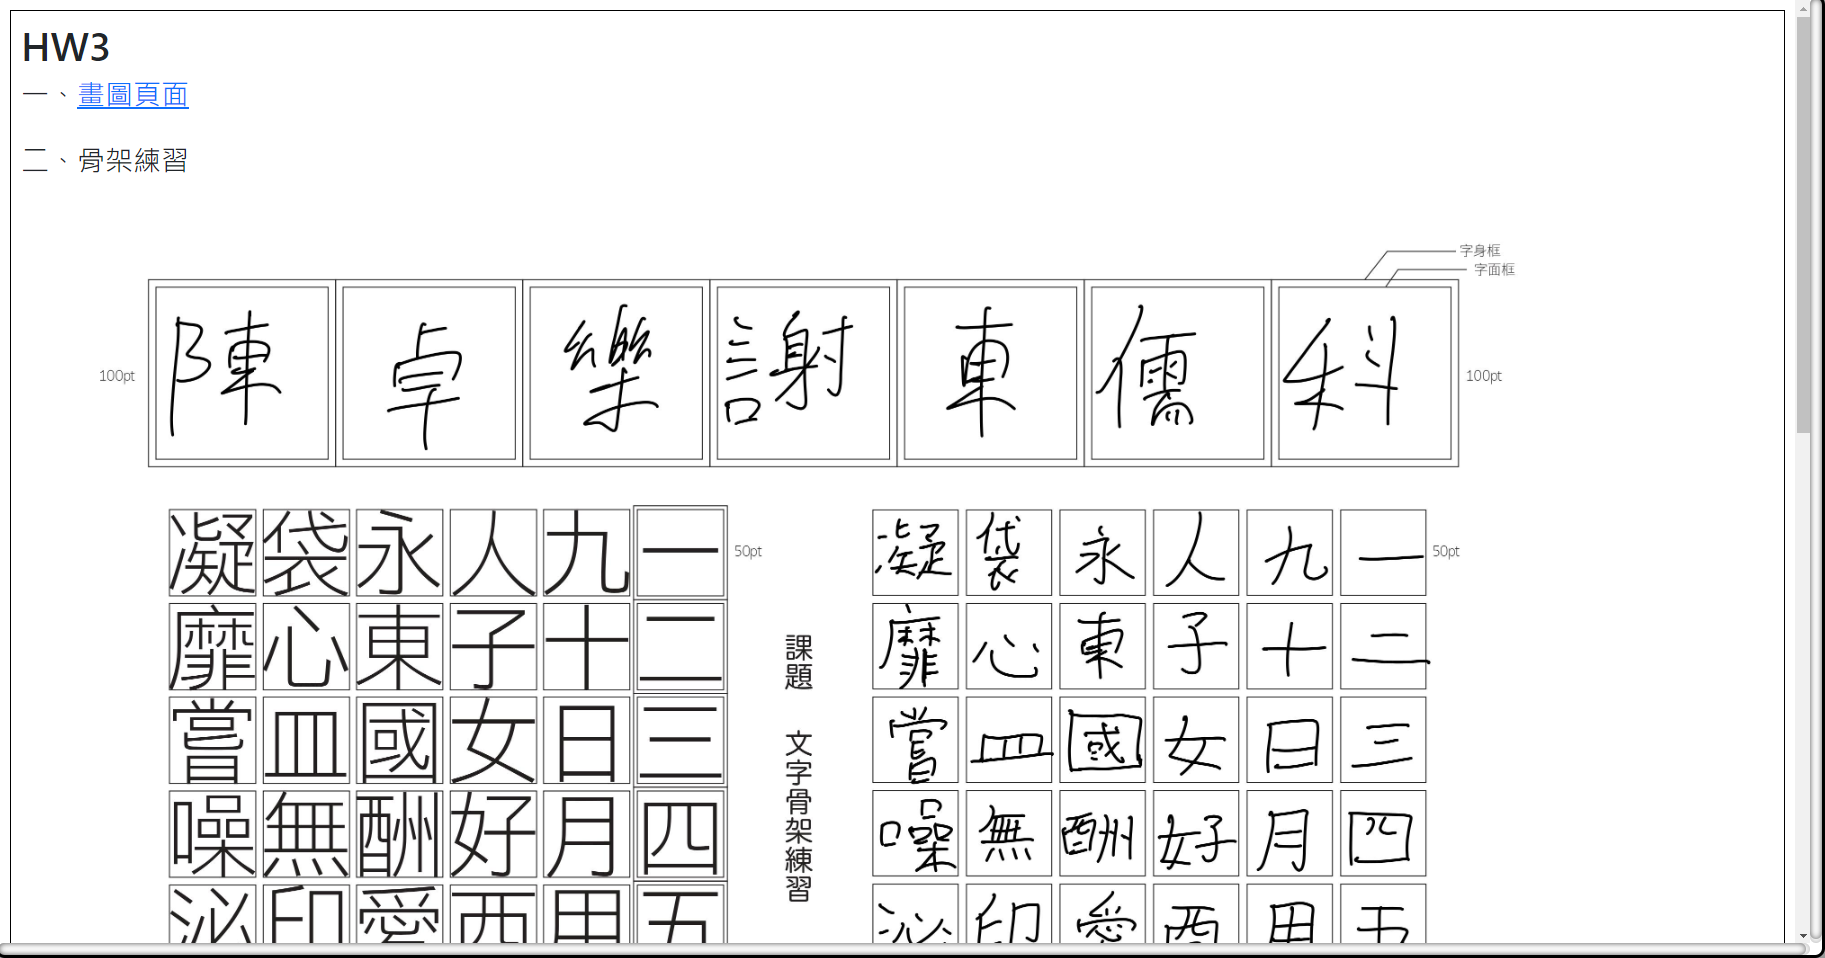 HW3
一、畫圖頁面
二、骨架練習
字身框
字面框
100pt
陳卓樂謝東儒科
100pt
凝袋永人九一
50pt
靡心東子十二
嘗皿國女日三
噪無酬好月四
泌印愛西用五
課題 文字骨架練習
凝袋永人九一
50pt
靡心東子十二
嘗皿國女日三
噪無酬好月四
泌印愛西用五